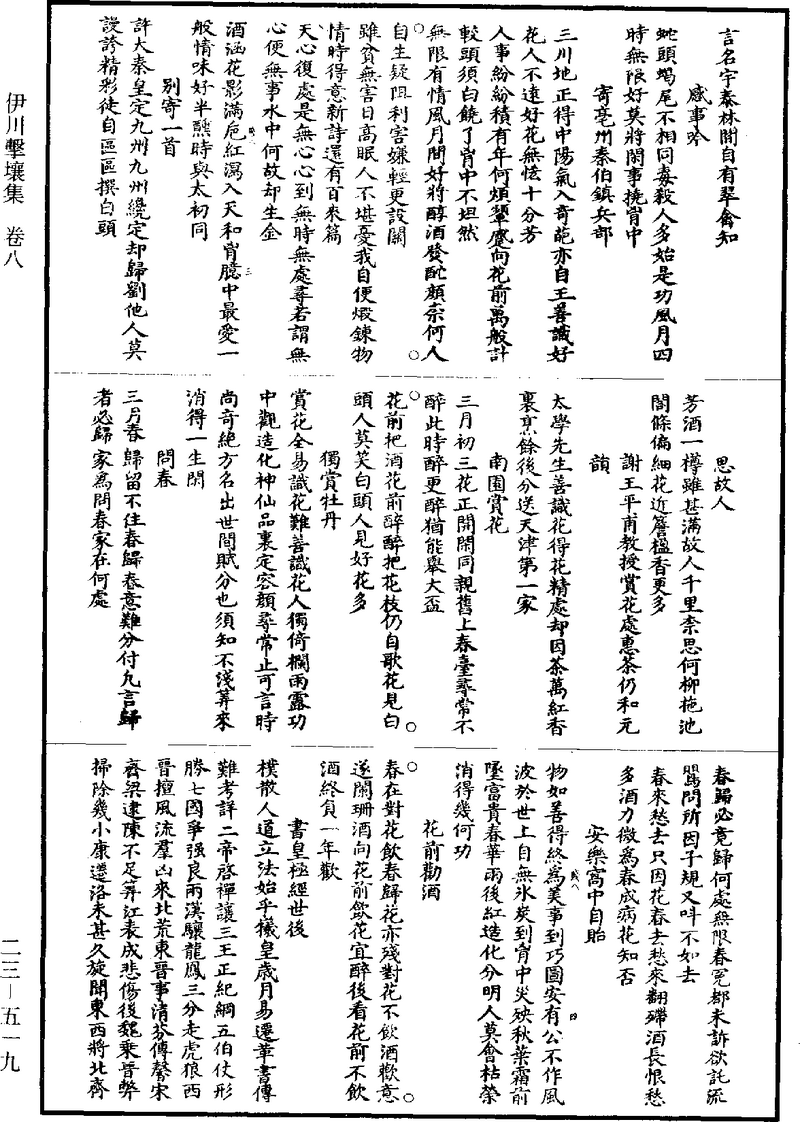 伊川擊壤集 卷八
言名宇泰林間自有翠禽知
感事吟
虵頭蝎尾不相同毒殺人多始是功風月四
時無限好莫將閑事撓胷中
寄亳州秦伯鎮兵部
三川地正得中陽氣入奇葩亦自王善識好
花人不遠好花無恡十分芳
人事紛紛積有年何煩顰蹙向花前萬般計
較頭須白饒了胷中不坦然
無限有情風月間好將醇酒發酡顏奈何人
自生疑阻利害嫌輕更設關
雖貧無害日高眠人不堪憂我自便煅鍊物
情時得意新詩還有百來篇
天心復處是無心心到無時無處尋若謂無
心便無事水中何故却生金
酒涵花影滿巵紅瀉入天和胷臆中最愛一
般情味好半醺時與太初同
別寄一首
許大秦皇定九州九州纔定却歸劉他人莫
謾誇精彩徒自區區撰白頭
思故人
芳酒一樽雖甚滿故人千里奈思何柳拖池
閣條偏細花近簷楹香更多
謝王平甫教授賞花處惠茶仍和元
韻
太學先生善識花得花精處却因茶萬紅香
裏烹餘後分送天津第一家
南園賞花
三月初三花正開閑同親舊上春臺尋常不
醉此時醉更醉猶能舉大盃
花前把酒花前醉醉把花枝仍自歌花見白
頭人莫笑白頭人見好花多
獨賞牡丹
賞花全易識花難善識花人獨倚欄雨露功
中觀造化神仙品裏定容顏尋常止可言時
尚奇絶方名出世間賦分也須知不淺筭來
消得一生閑
問春
三月春歸留不住春歸春意難分付凢言歸
者必歸家爲問春家在何處
春歸必竟歸何處無限春冤都未訴欲託流
鸎問所因子規又呌不如去
春來愁去只因花春去愁來翻殢酒長恨愁
多酒力微爲春成病花知否
安樂窩中自貽
物如善得終爲美事到巧圖安有公不作風
波於世上自無氷炭到胷中災殃秋葉霜前
墜富貴春華雨後紅造化分明人莫會枯榮
消得幾何功
花前勸酒
春在對花飲春歸花亦殘對花不飲酒歡意
遂闌珊酒向花前飲花宜醉後看花前不飲
酒終負一年歡
書皇極經世後
樸散人道立法始乎犧皇歲月易遷革書傳
難考詳二帝啓禪讓三王正紀綱五伯仗形
勝七國爭强良兩漢驤龍鳳三分走虎狼西
晉擅風流羣凶來北荒東晉事清芬傳馨宋
齊梁逮陳不足筭江表成悲傷後魏乗晉弊
掃除幾小康遷洛未甚久旋聞東西將北齊
二三—五一九